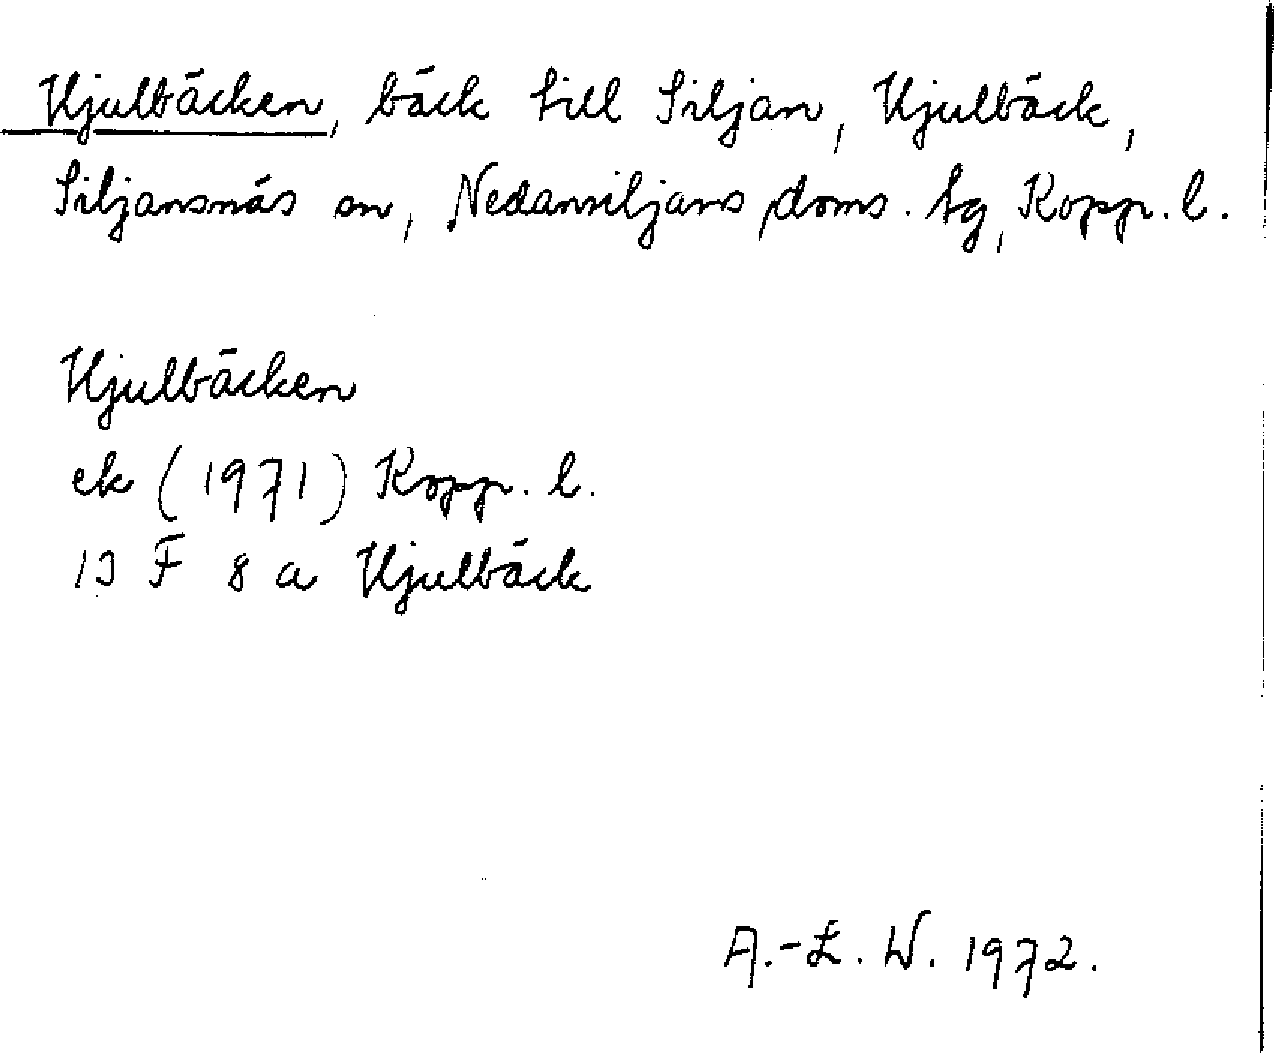 Hjulbäcken, bäck till Siljan, Hjulbäck,
Siljansnäs sn, Nedansiljans doms. tg, Kopp. l.
Hjulbäcken
ek (1971) Kopp. l.
13 F 8 a Hjulbäck
A.-L. W. 1972.